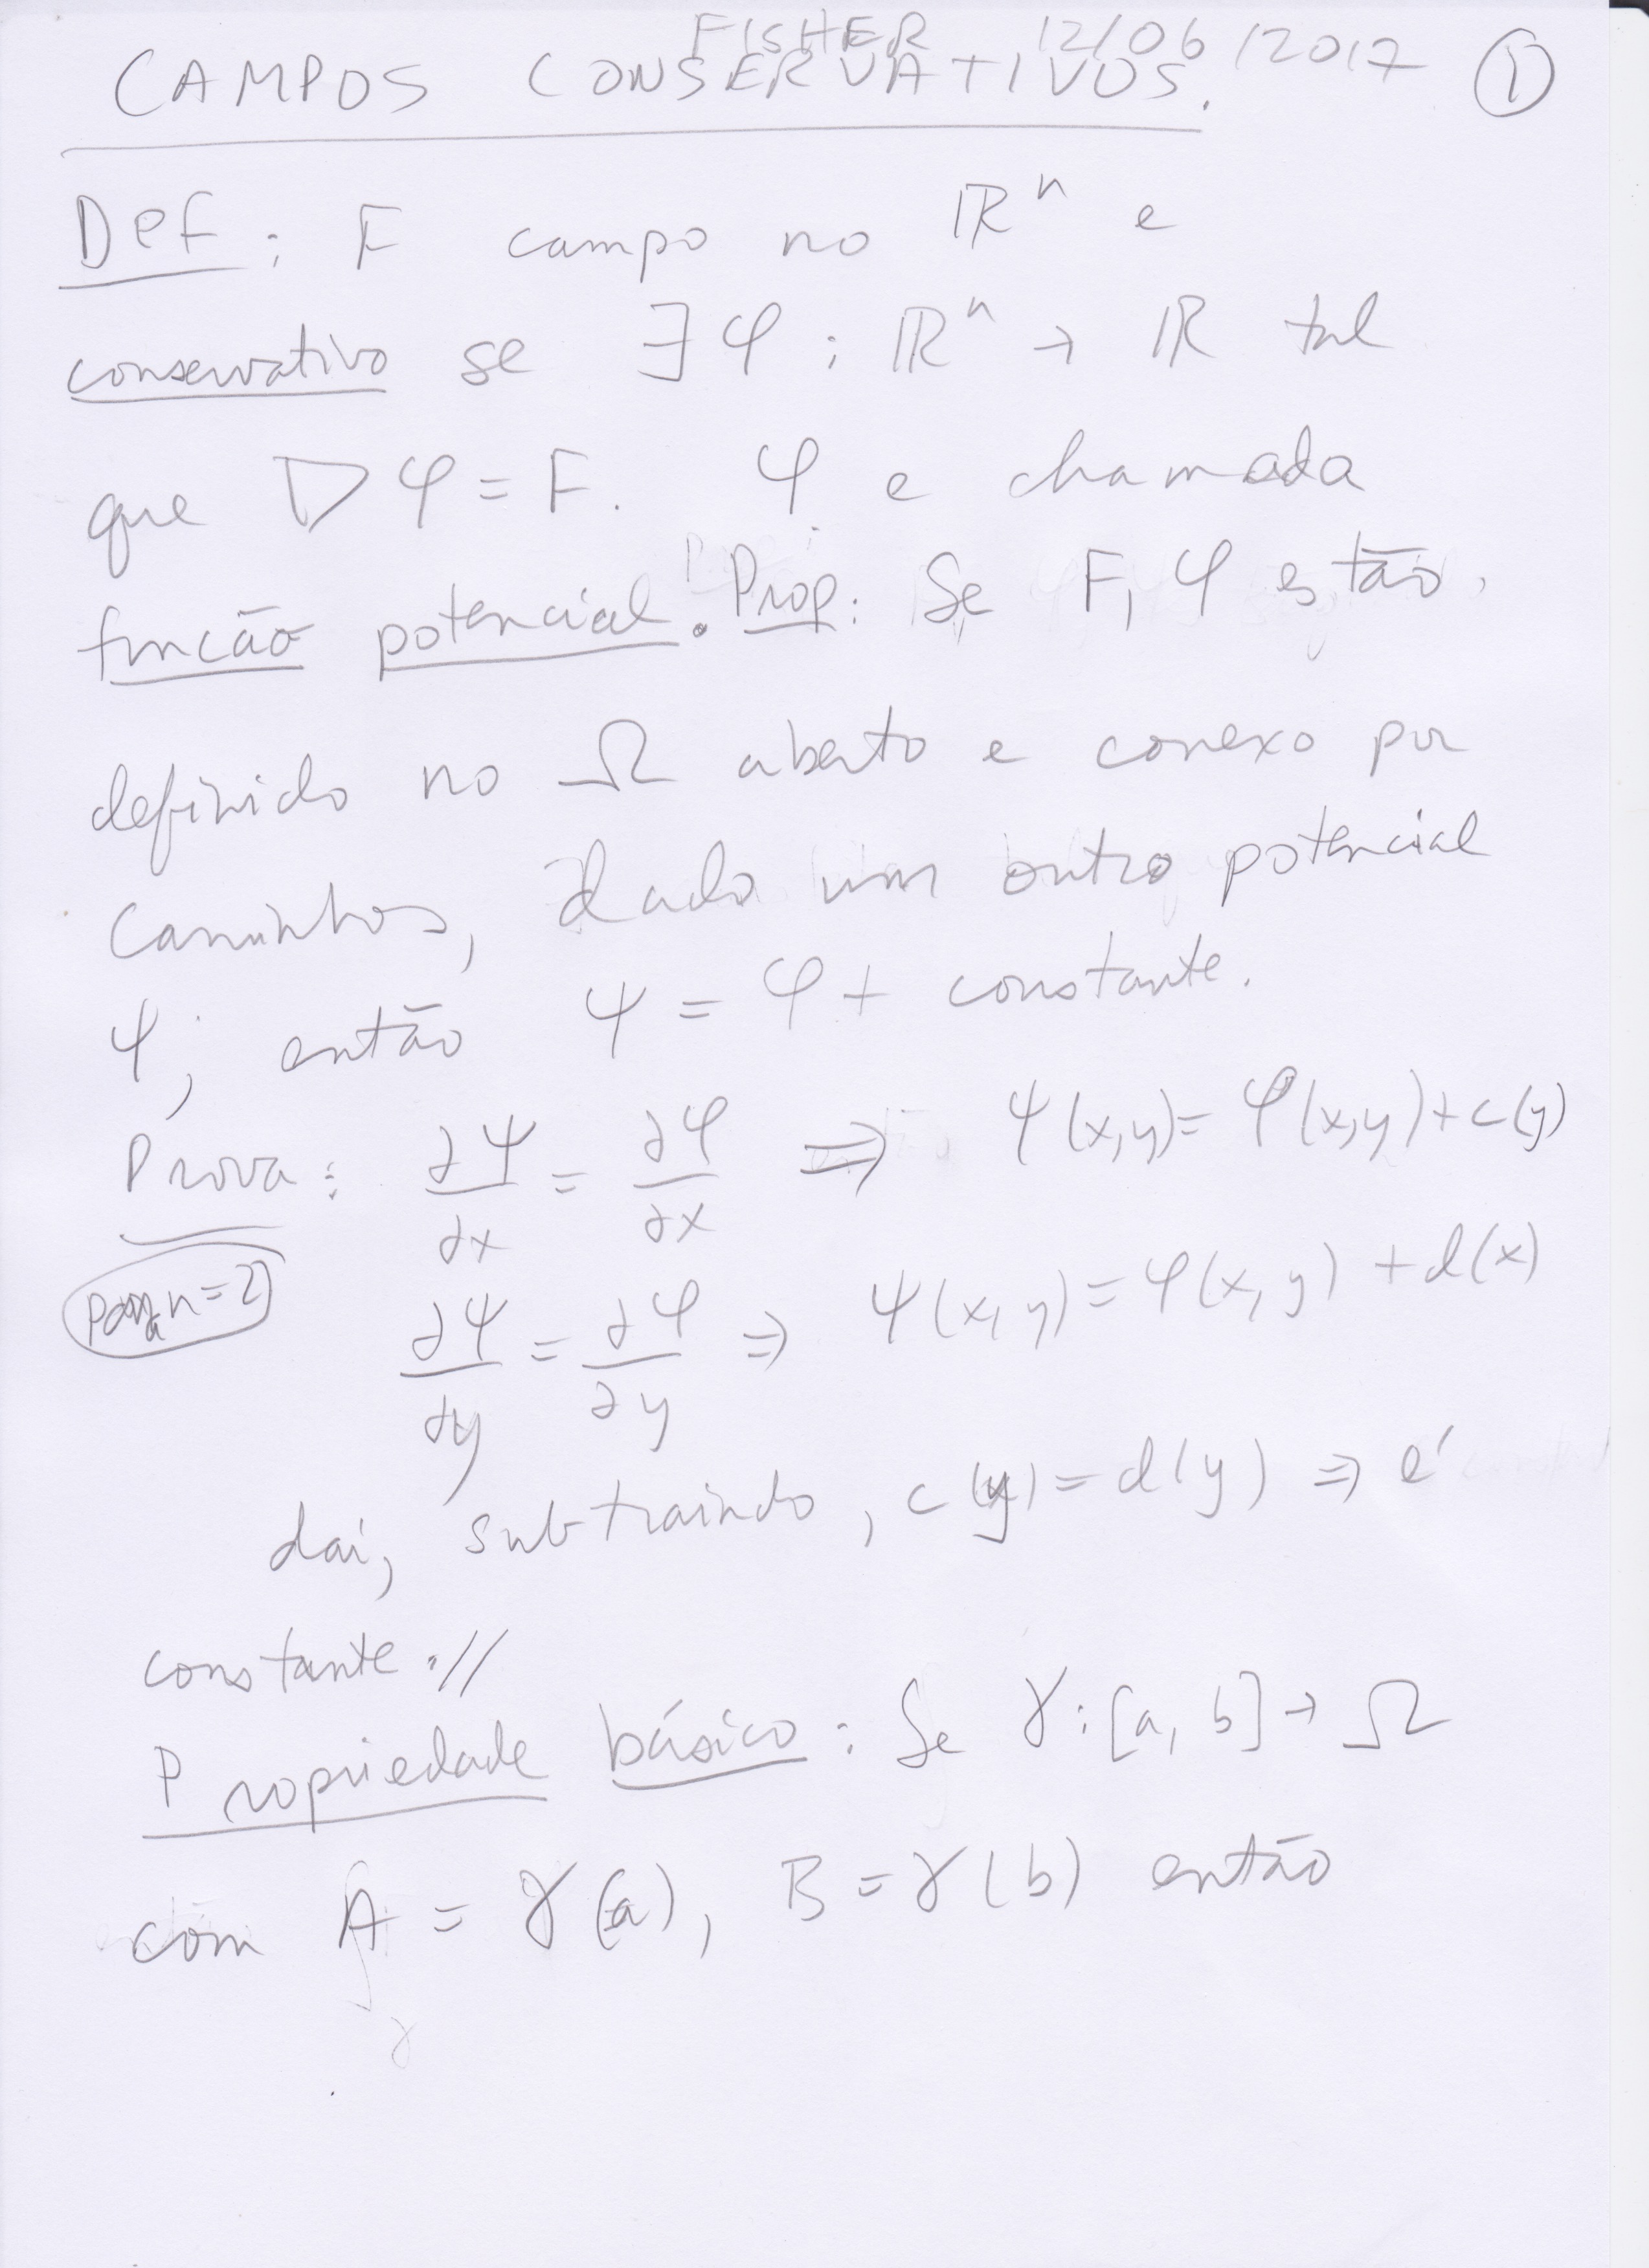 FISHER 12/06/2017
CAMPOS CONSERVATIVOS. ①
Def: F campo no ℝⁿ e
conservativo se ∃ φ : ℝⁿ → ℝ tal
que ∇φ = F. φ e chamada
função potencial. Prop: Se F, φ estão
definido no Ω aberto e conexo por
caminhos, dado um outro potencial
ψ, então ψ = φ + constante.
Prova: ∂ψ/∂x = ∂φ/∂x ⟹ ψ(x,y) = φ(x,y) + c(y)
para n=2
∂ψ/∂y = ∂φ/∂y ⇒ ψ(x,y) = φ(x,y) + d(x)
daí, subtraindo, c(y) = d(y) ⇒ é
constante.//
Propriedade básico: Se γ:[a, b] → Ω
com A = γ(a), B = γ(b) então